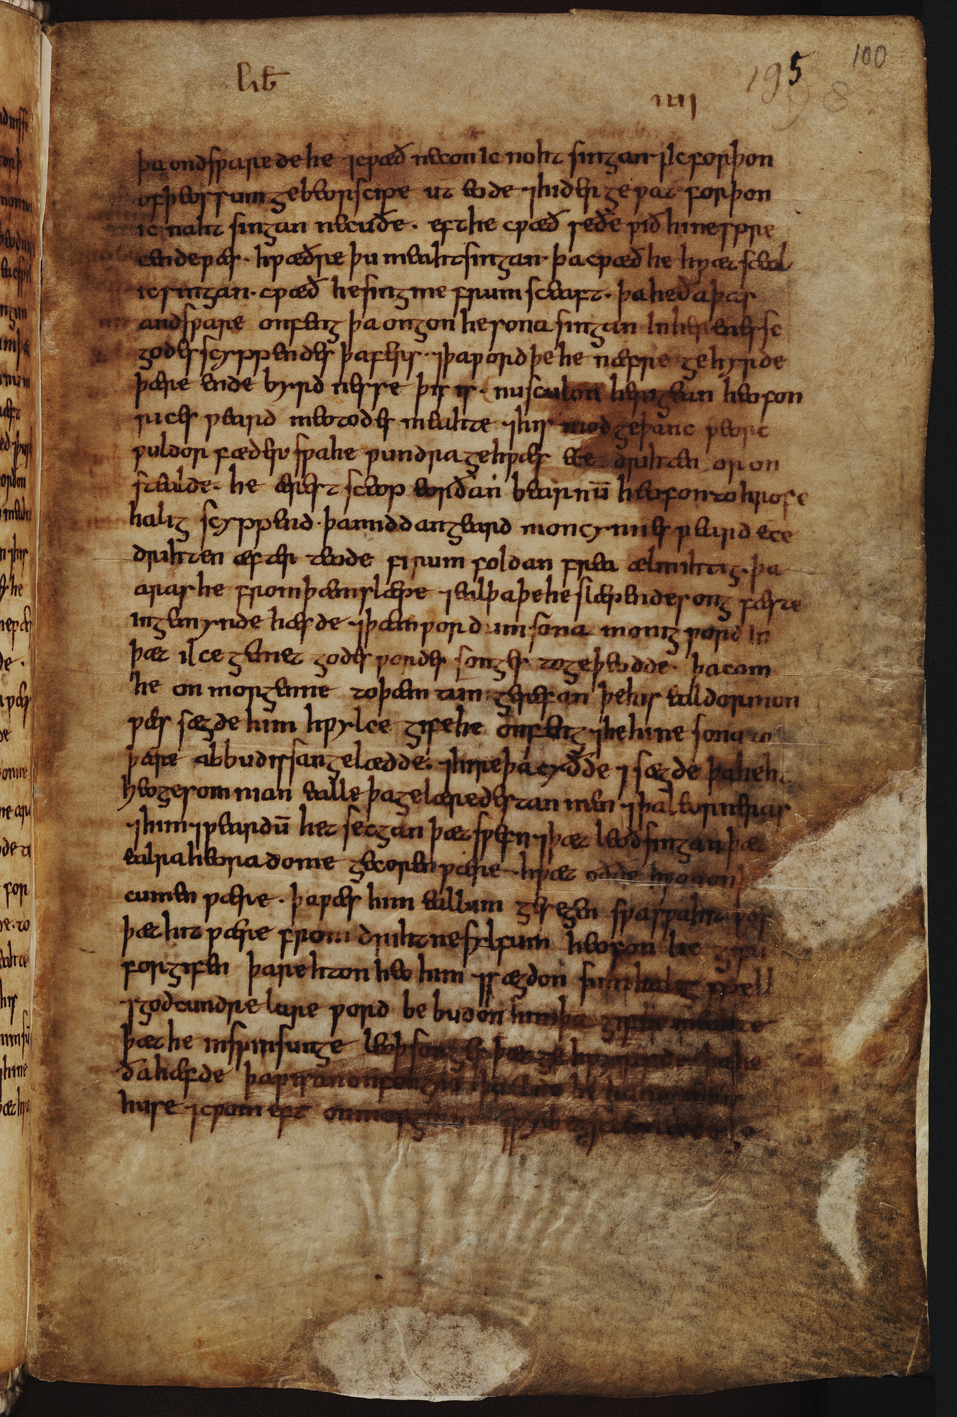 liƀ
iiii
195
100
98
þa ondsƿarede he ⁊cƿæð neconic noht singan ⁊ic forþon
of þeossum gebeorscipe ut eode ⁊hider geƿat forþon
ic naht singan necuðe. eft he cƿæð seðe ƿið hine sprec
ende ƿæs. hƿæðre þu meaht singan. þa cƿæð he hƿæt sceal
ic singan. cƿæð he sing me frumsceaft. þa heða þas
andsƿare onfeng þa ongon he sona singan in herenesse
godes scyppendes þa fers ⁊þa ƿord þe he næfre gehyrde
þære endebyrdnesse þis is. nu sculon herigean heofon
rices ƿeard meotodes meahte ⁊his modgeþanc ƿeorc
ƿuldor fæder sƿa he ƿundra gehƿæs ece drihten or on
stealde. he ærest sceop eorðan bearnū heofon to hrofe
halig scyppend. þa middangeard moncynnes ƿeard ece
drihten æfter teode firum foldan frea ælmihtig. þa
aras he from þæm slæpe ⁊eal þa þe he slæpende song fæste
in gemynde hæfde ⁊þæm ƿordum sona monig ƿord in
þæt ilce gemet gode ƿyrðes songes togeþeodde. þa com
he on morgenne to þæm tungerefan þe his ealdormon
ƿæs sægde him hƿylce gife he onfeng ⁊he hine sona to
þære abbudissan gelædde ⁊hire þa cyðde ⁊sægde þa heht
heo gesomnian ealle þa gelæredestan men ⁊þa leorneras
⁊him ⁊ƿeardū het secgan þæt sƿefn ⁊þæt leoð singan þæt
ealra heora dome gecoren ƿære hƿæt oððe hƿonon
cumen ƿære. þa ƿæs him eallum gesegen sƿa sƿa hit ƿæs
þæt hit ƿære from drihtne sylfum heofonlic gifu
forgifen þa rehton heo him ⁊sægdon sum halig spell
⁊godcundre lare ƿord bebudon him þa gif he meahte
þæt he in sƿinsunge leoþsonges þæt gehƿyrfde þa he
ða hæfde þa ƿisan onfongne þa eode he ham to his
huse ⁊cƿom eft on morgenne